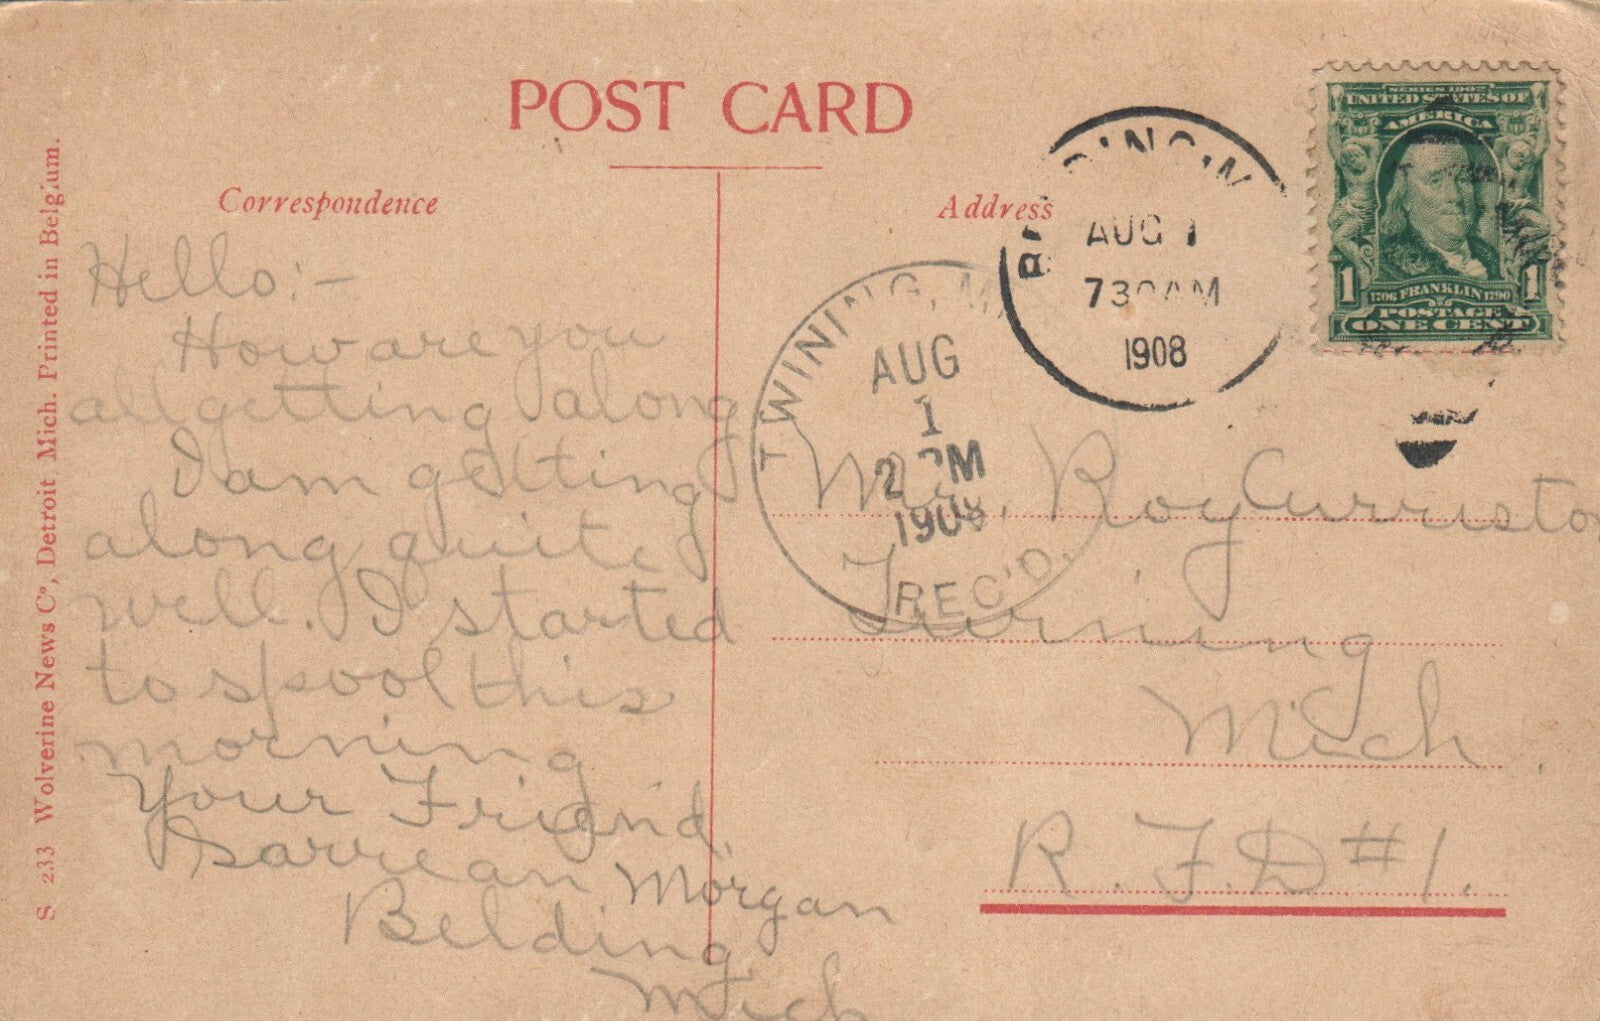 POST CARD
Correspondence
Address
S 233 Wolverine News Co, Detroit, Mich. Printed in Belgium.
Hello:-
How are you
all getting along
I am getting
along quite
well. I started
to spool this
morning
Your Friend
Morgan
Belding
Mich
TWINING, M
AUG
1
2 PM
1908
REC'D.
AUG 1
730AM
1908
SERIES 1902
UNITED STATES OF
AMERICA
1 1
1706 FRANKLIN 1790
POSTAGE
ONE CENT
Mr. Roy
Twining
Mich.
R.F.D #1.